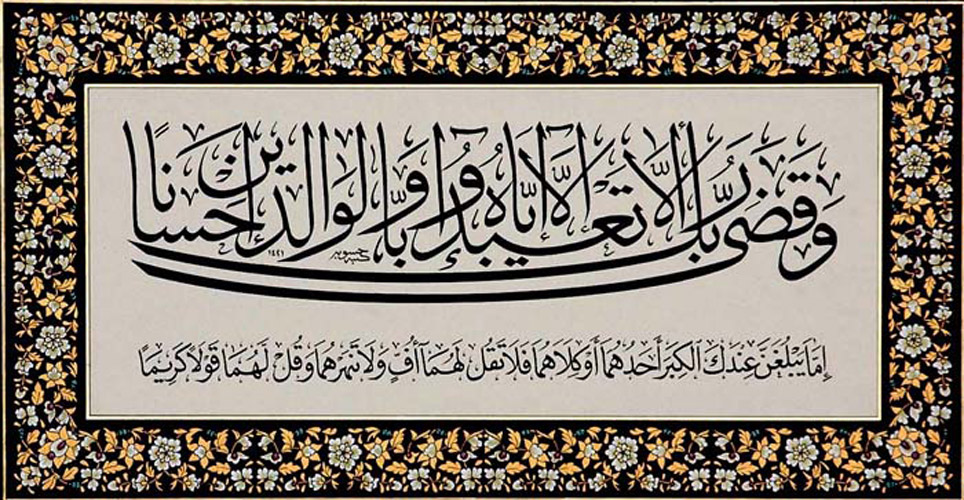 وَقَضَىٰ رَبُّكَ أَلَّا تَعْبُدُوا إِلَّا إِيَّاهُ وَبِالْوَالِدَيْنِ إِحْسَانًا
إِمَّا يَبْلُغَنَّ عِنْدَكَ الْكِبَرَ أَحَدُهُمَا أَوْ كِلَاهُمَا فَلَا تَقُلْ لَهُمَا أُفٍّ وَلَا تَنْهَرْهُمَا وَقُلْ لَهُمَا قَوْلًا كَرِيمًا